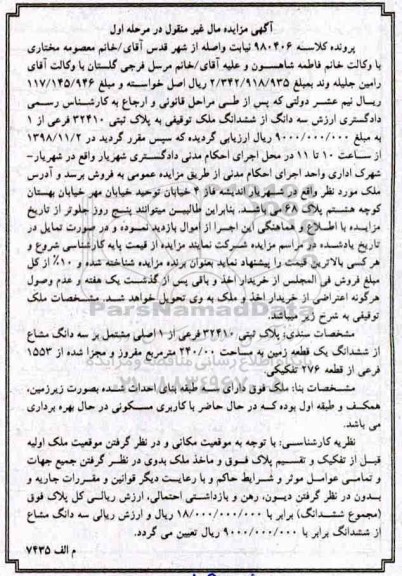 آگهی مزایده مال غیر منقول در مرحله اول
پرونده کلاسه ۹۸۰۴۰۶ نیابت واصله از شهر قدس آقای/خانم معصومه مختاری
با وکالت خانم فاطمه شاهسون و علیه آقای/خانم مرسل فرجی گلستان با وکالت آقای
رامین جلیله وند بمبلغ ۲/۳۴۲/۹۱۸/۹۳۵ ریال اصل خواسته و مبلغ ۱۱۷/۱۴۵/۹۴۶
ریال نیم عشر دولتی که پس از طی مراحل قانونی و ارجاع به کارشناس رسمی
دادگستری ارزش سه دانگ از ششدانگ ملک توقیفی به پلاک ثبتی ۳۲۴۱۰ فرعی از ۱
به مبلغ ۹/۰۰۰/۰۰۰/۰۰۰ ریال ارزیابی گردیده که سپس مقرر گردید در ۱۳۹۸/۱۱/۲
از ساعت ۱۰ تا ۱۱ در محل اجرای احکام مدنی دادگستری شهریار واقع در شهریار-
شهرک اداری واحد اجرای احکام مدنی از طریق مزایده عمومی به فروش برسد و آدرس
ملک مورد نظر واقع در شهریار اندیشه فاز ۴ خیابان توحید خیابان مهر خیابان بهستان
کوچه هشتم پلاک ۶۸ می باشد. بنابراین طالبین میتوانند پنج روز جلوتر از تاریخ
مزایده با اطلاع و هماهنگی این اجرا از اموال بازدید نموده و در صورت تمایل در
تاریخ یادشده در مراسم مزایده شرکت نمایند مزایده از قیمت پایه کارشناسی شروع و
هر کسی بالاترین قیمت را پیشنهاد نماید بعنوان برنده مزایده شناخته شده و ۱۰٪ از کل
مبلغ فروش فی المجلس از خریدار اخذ و باقی پس از گذشت یک هفته و عدم وصول
هرگونه اعتراضی از خریدار اخذ و ملک به وی تحویل خواهد شد. مشخصات ملک
توقیفی به شرح زیر میباشد.
مشخصات سندی: پلاک ثبتی ۳۲۴۱۰ فرعی از ۱ اصلی مشتمل بر سه دانگ مشاع
از ششدانگ یک قطعه زمین به مساحت ۲۴۰/۰۰ مترمربع مفروز و مجزا شده از ۱۵۵۳
فرعی از قطعه ۲۷۶ تفکیکی.
مشخصات بنا: ملک فوق دارای سه طبقه بنای احداث شده بصورت زیرزمین،
همکف و طبقه اول بوده که در حال حاضر با کاربری مسکونی در حال بهره برداری
می باشد.
نظریه کارشناسی: با توجه به موقعیت مکانی و در نظر گرفتن موقعیت ملک اولیه
قبل از تفکیک و تقسیم پلاک فوق و ماخذ ملک بدوی در نظر گرفتن جمیع جهات
و تمامی عوامل موثر و شرایط حاکم و با رعایت دیگر قوانین و مقررات جاریه و
بدون در نظر گرفتن دیون، رهن و بازداشتی احتمالی، ارزش ریالی کل پلاک فوق
(مجموع ششدانگ) برابر با ۱۸/۰۰۰/۰۰۰/۰۰۰ ریال و ارزش ریالی سه دانگ مشاع
از ششدانگ برابر با ۹/۰۰۰/۰۰۰/۰۰۰ ریال تعیین می گردد.
م الف ۷۴۳۵
ParsNamadData
پایگاه اطلاع رسانی مناقصه و مزایده